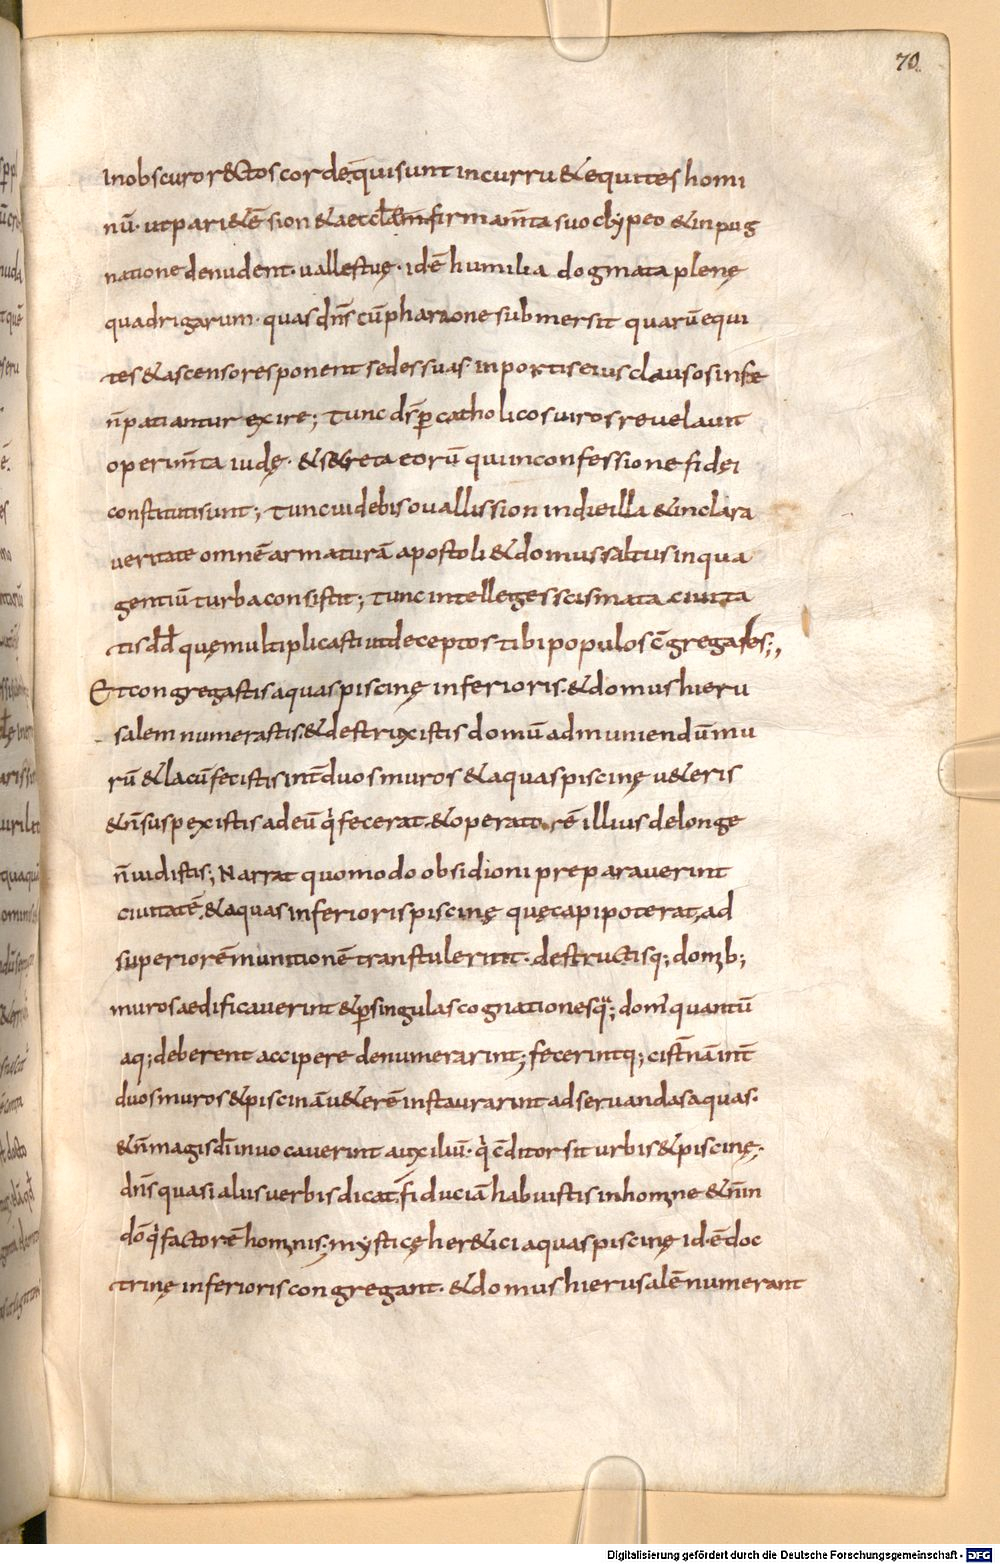 70.
In obscuro r&ctos corde, qui sunt in curru & equites homi
nū· ut pari&ē sion & aeccl̄am firmam̄ta suo clypeo & inpug
natione denudent· uallestuę· idē humilia dogmata plenę
quadrigarum· quas dn̄s cū pharaone submersit quarū equi
tes & ascensores ponent sedes suas· in portis eius clausos in se
n̄ patiantur exire; Tunc dn̄s p̄ catholicos uiros reuelauit
operim̄ta iudę· & s&creta eorū qui in confessione fidei
constituti sunt; Tunc uidebis o uallis sion in die illa & in clara
ueritate omnē armaturā apostoli & domus saltus in qua
gentiū turba consistit; Tunc intelleges scismata ciuita
tis dd̄ quę multiplicasti ut deceptos tibi populos c̄gregares;,
Et congregastis aquas piscinę inferioris· & domus hieru
salem numerastis· & destruxistis domū ad muniendū mu
rū & lacū fecistis int̄ duos muros & aquas piscinę u&eris
& n̄ suspexistis ad eū q̇ fecerat· & operatorē illius de longe
n̄ uidistis; Narrat quomodo obsidioni preparauerint
ciuitatē, & aquas inferioris piscinę quę capi poterat, ad
superiorē munitionē transtulerint· destructisq; domib;
muros aedificauerint & p̄ singulas cognationes q̄q; dom' quantū
aq; deberent accipere denumerarint; fecerintq; cist̄nā int̄
duos muros & piscinā u&erē instaurarint ad seruandas aquas·
& n̄ magis dī inuocauerint auxiliū· q̇ c̄ditor sit urbis & piscinę·
dn̄s quasi aliis uerbis dicat, fiduciā habuistis in homine & n̄ in
dō q̇ factorē hominis; mysticę her&ici aquas piscinę id·ē doc
trinę inferioris congregant· & domus hierusalē numerant
Digitalisierung gefördert durch die Deutsche Forschungsgemeinschaft - DFG